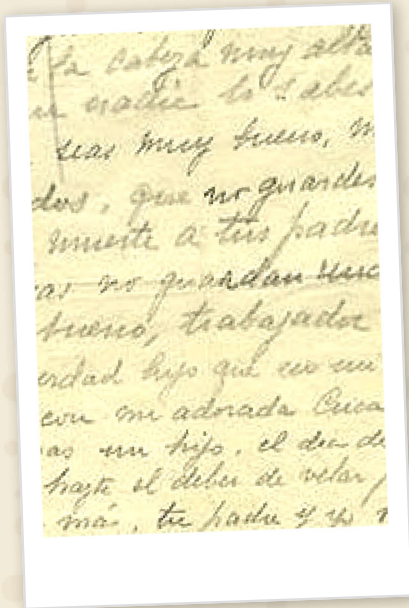 la cabeza muy alta
nadie lo sabes
seas muy bueno, m
dos, que no guardes
muerte a tus padre
as no guardan renc
bueno, trabajador
erdad hijo que en mi
con mi adorada Cuca
as un hijo, el dia de
hazte el deber de velar
más, tu padre y yo